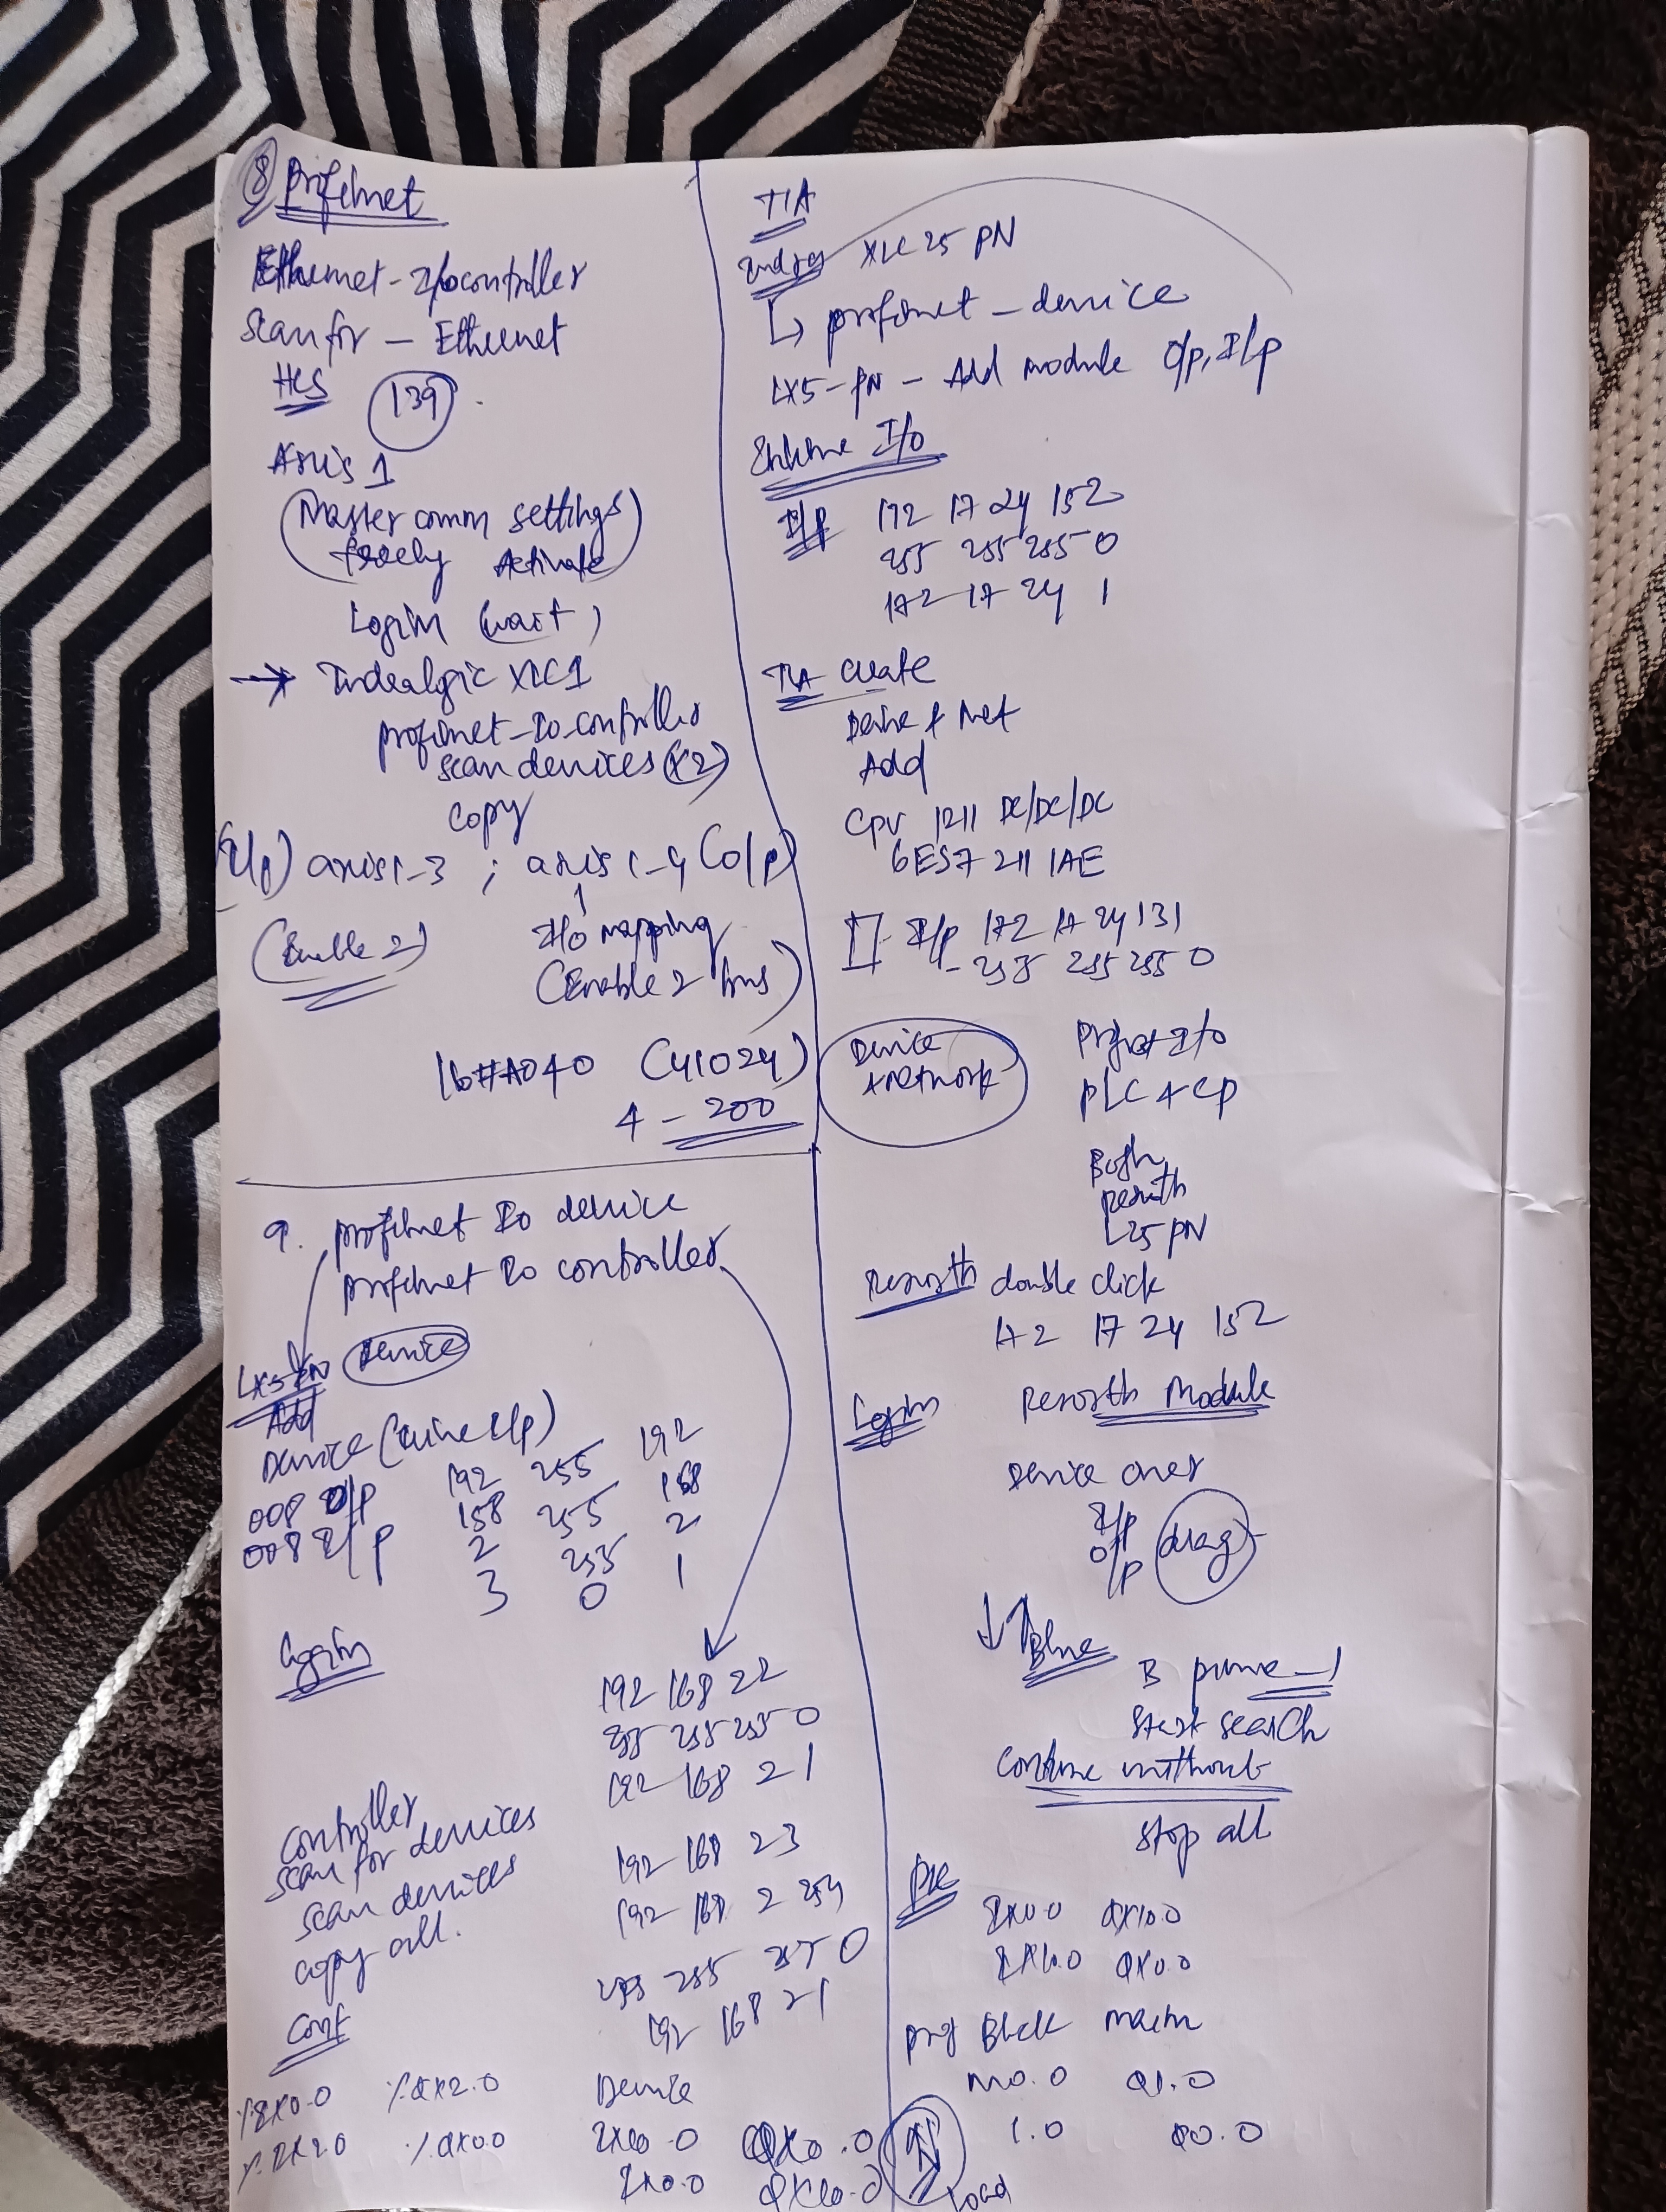 8 Profinet
Ethernet - I/O controller
Scan for - Ethernet
HCS
139
Axis 1
(Master comm settings
freely Activate)
Login (wait)
→ Indralogic XLC1
profinet_Io_controller
scan devices (X2)
copy
(I/p) axis1_3 ; axis 1_4 (o/p)
(Enable 2)
I/O mapping
(Enable 2 bus)
16#A040 (41024)
4 - 200
9. profinet Io device
profinet Io controller
LX5 PN Device
Add
Device I/p)
008 O/p
008 I/p
192 255 192
158 255 168
2 255 2
3 0 1
Login
192 168 2 2
255 255 255 0
192 168 2 1
controller
scan for devices
scan devices
copy all.
192 168 2 3
192 168 2 254
255 255 255 0
192 168 2 1
Cont
%IX0.0 %QX2.0
%IX2.0 %QX0.0
Device
IX10.0 QX0.0
IX0.0 QX10.0
TIA
XLC 25 PN
↳ profinet_device
LX5-PN - Add module O/p, I/p
I/O
I/p 172 17 24 152
255 255 255 0
172 17 24 1
TIA create
Device & Net
Add
CPU 1211 DC/DC/DC
6ES7 211 1AE
I/p 172 17 24 131
- 255 255 255 0
Device
& network
I/O
PLC & CP
Both
L25 PN
double click
172 17 24 152
Login
Rexroth Module
Device over
I/p
O/p
drag
↓↑
Blue
1
Start search
Continue without
Stop all
IX0.0 QX10.0
QX0.0
prog Block main
M0.0 Q1.0
1.0 Q0.0
load